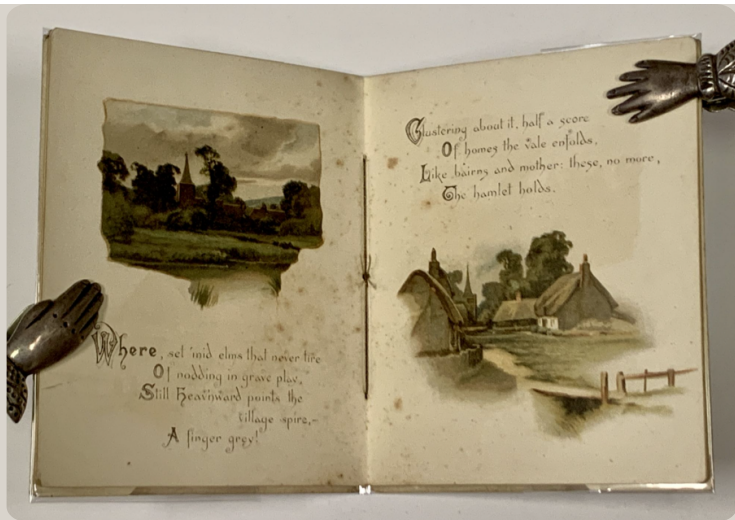 Where, set 'mid elms that never tire
Of nodding in grave play,
Still Heav'nward points the
village spire,-
A finger grey!
Clustering about it, half a score
Of homes the vale enfolds,
Like bairns and mother: these, no more,
The hamlet holds.